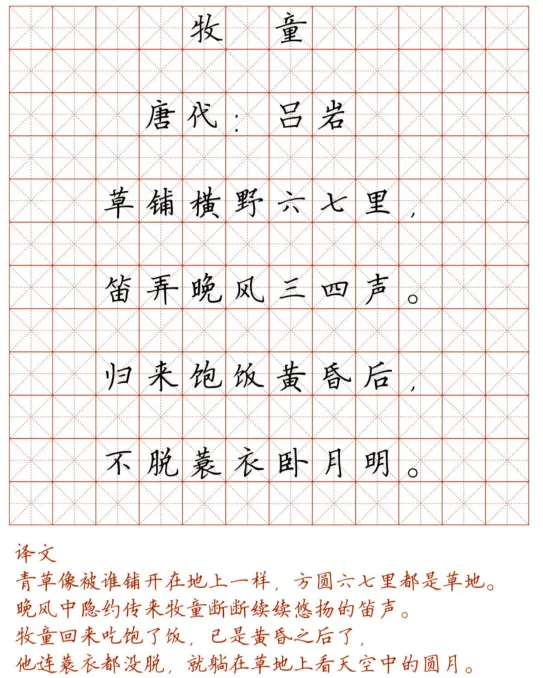 牧 童
唐代：吕岩
草铺横野六七里，
笛弄晚风三四声。
归来饱饭黄昏后，
不脱蓑衣卧月明。
译文
青草像被谁铺开在地上一样，方圆六七里都是草地。
晚风中隐约传来牧童断断续续悠扬的笛声。
牧童回来吃饱了饭，已是黄昏之后了，
他连蓑衣都没脱，就躺在草地上看天空中的圆月。